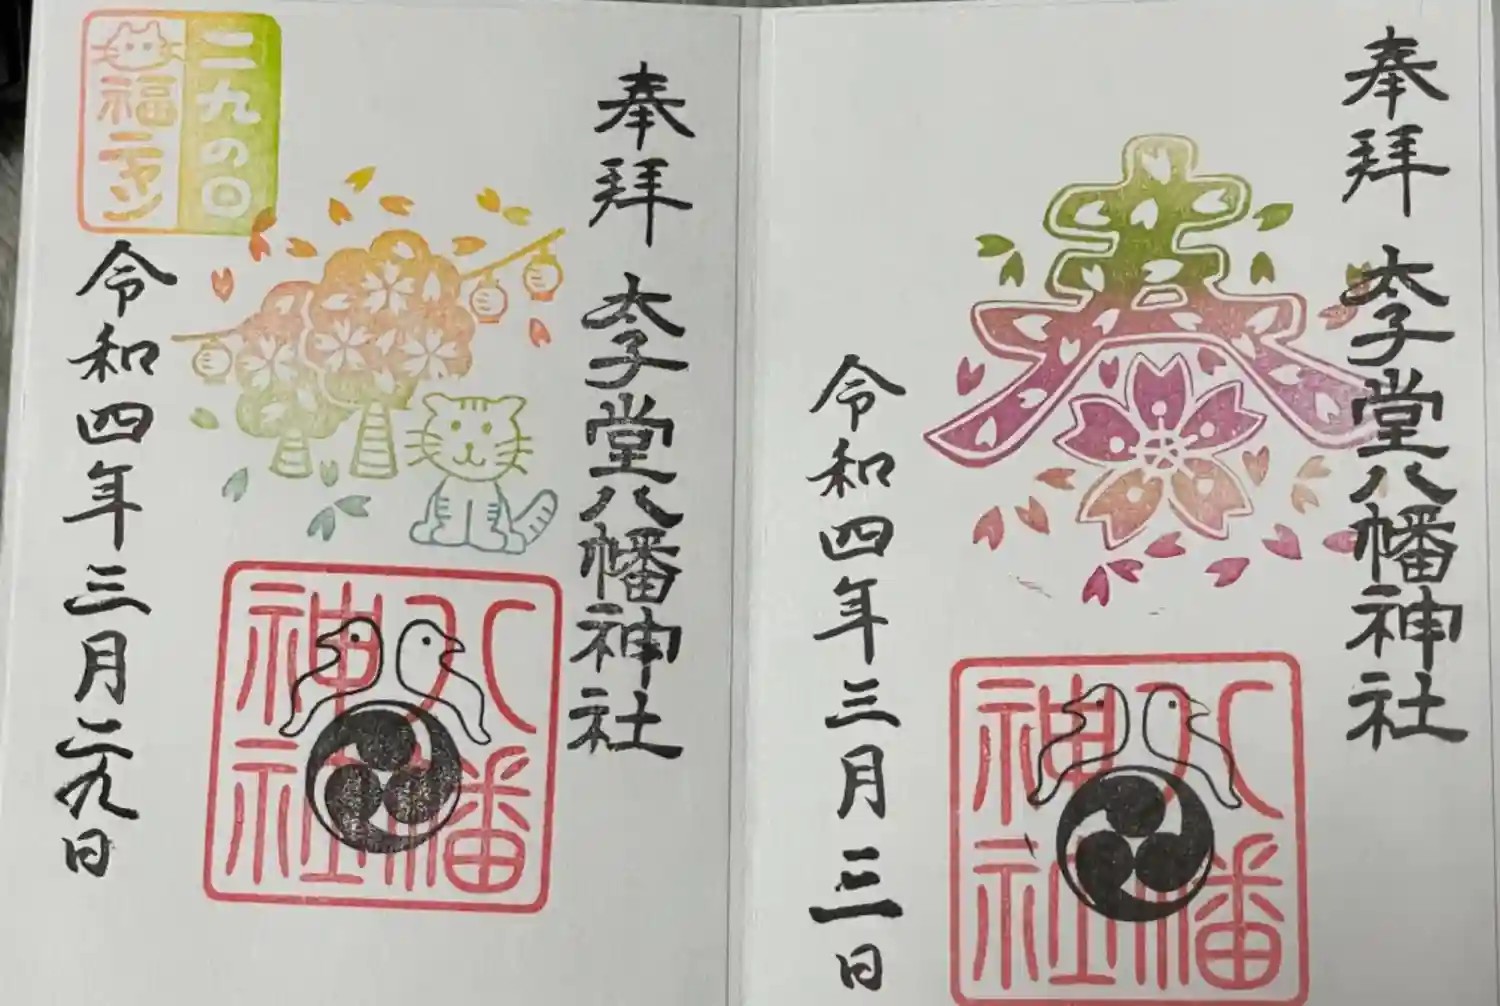 奉拝 太子堂八幡神社
春
八幡神社
令和四年三月三一日
奉拝 太子堂八幡神社
八幡神社
二九の日
福ニャン
令和四年三月二九日